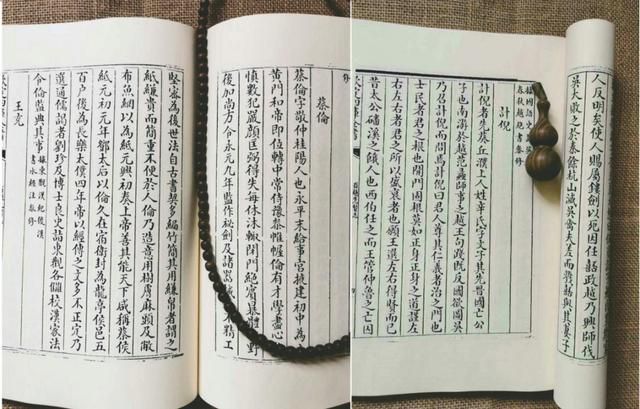 蔡倫
蔡倫字敬仲桂陽人也永平末給事宮掖建初中為
黃門和帝即位轉中常侍豫參帷幄倫有才學盡心
慎數犯嚴顏匡弼得失每休沐輒閉門絕賓暴體田野
後加尚方令永元九年監作祕劍及諸器精工
堅密為後世法自古書契多編竹簡其用縑帛者謂之
紙縑貴而簡重不便於人倫乃造意用樹膚麻頭及敝
布魚網以為紙元興初奏上帝善其能天下咸稱蔡侯
紙元初元年鄧太后以倫久在宿衛封為龍亭侯邑五
百户後為長樂太僕四年帝以經傳之文多不正定乃
選通儒謁者劉珍及博士良史詣東觀各讎校漢家法
令倫監典其事 據東觀漢紀後漢
書水經注參修
王堯
人反明矣使人賜屬鏤劍以死因任嚭政越乃興師伐
吳大敗之於秦餘杭山滅吳禽夫差而戮嚭與其妻子
據國語史記吳越
春秋越絕書參修
計倪
計倪者生葵丘濮上人姓辛氏字文子其先晉國亡公
子也南游於越范蠡師事之越王句踐既反國欲圖吳
乃召計倪而問焉計倪曰君人尊其仁義者治之門也
士民者君之根也開門固根莫如正身正身之道謹左
右左右者君之所以盛衰者也願王選左右得賢而已
昔太公磻溪之餓人也西伯任之而王管仲魯之亡囚